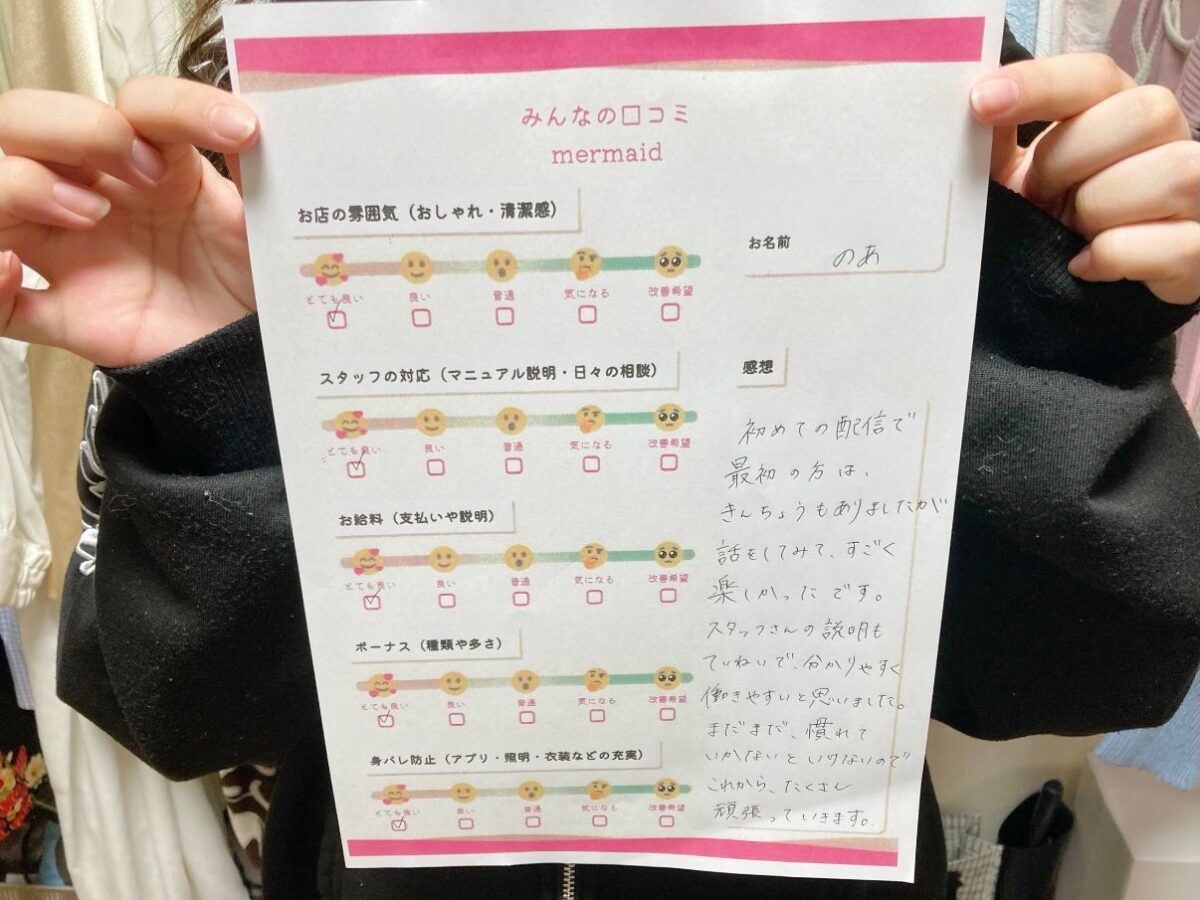 みんなの口コミ
mermaid
お店の雰囲気（おしゃれ・清潔感）
とても良い 良い 普通 気になる 改善希望
スタッフの対応（マニュアル説明・日々の相談）
とても良い 良い 普通 気になる 改善希望
お給料（支払いや説明）
とても良い 良い 普通 気になる 改善希望
ボーナス（種類や多さ）
とても良い 良い 普通 気になる 改善希望
身バレ防止（アプリ・照明・衣装などの充実）
とても良い 良い 普通 気になる 改善希望
お名前
のあ
感想
初めての配信で
最初の方は、
きんちょうもありましたが
話をしてみて、すごく
楽しかったです。
スタッフさんの説明も
ていねいで、分かりやすく
働きやすいと思いました。
まだまだ、慣れて
いかないといけないので
これから、たくさん
頑張っていきます。